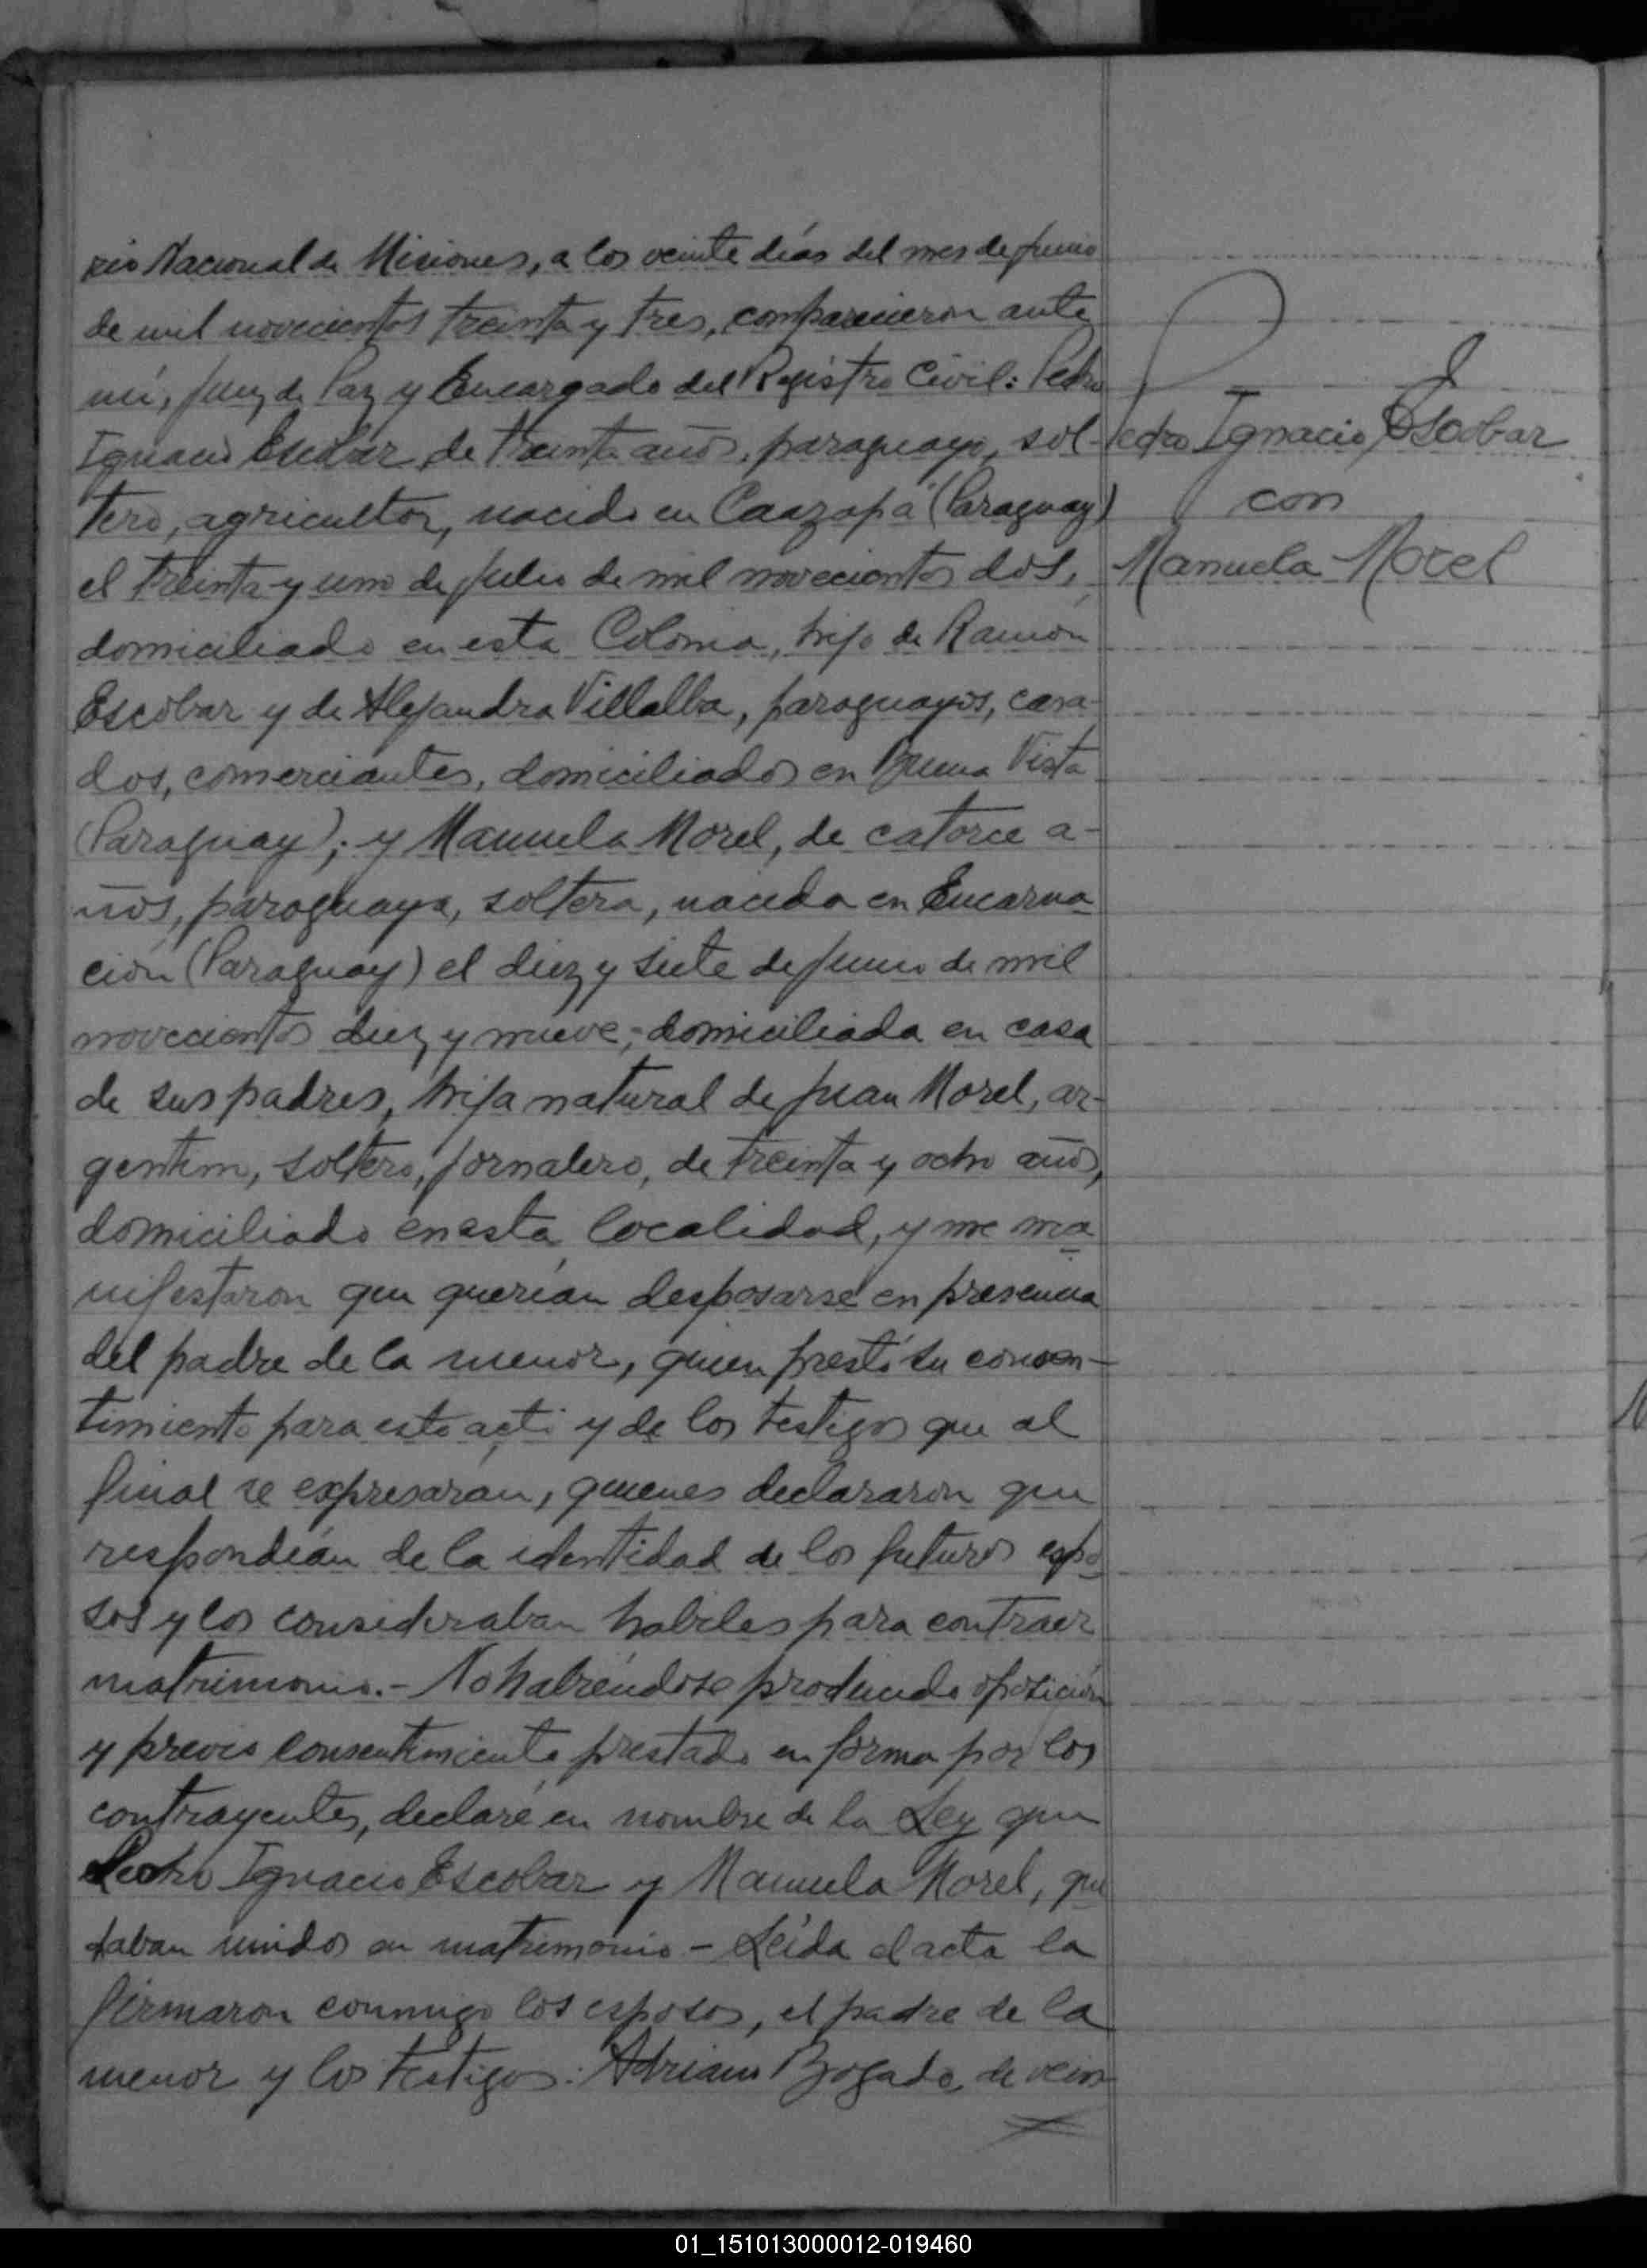 rio Nacional de Misiones, a los veinte días del mes de Junio
de mil novecientos treinta y tres, comparecieron ante
mí, Juez de Paz y Encargado del Registro Civil: Pedro
Ignacio Escobar, de treinta años, paraguayo, sol-
tero, agricultor, nacido en Caazapá (Paraguay)
el treinta y uno de Julio de mil novecientos dos,
domiciliado en esta Colonia, hijo de Ramón
Escobar y de Alejandra Villalba, paraguayos, casa-
dos, comerciantes, domiciliados en Buena Vista
(Paraguay); y Manuela Morel, de catorce a-
ños, paraguaya, soltera, nacida en Encarna
ción (Paraguay) el diez y siete de Junio de mil
novecientos diez y nueve, domiciliada en casa
de sus padres, hija natural de Juan Morel, ar-
gentino, soltero, jornalero, de treinta y ocho años,
domiciliado en esta localidad, y me ma
nifestaron que querían desposarse en presencia
del padre de la menor, quien prestó su consen-
timiento para este acto y de los testigos que al
final se expresarán, quienes declararon que
respondían de la identidad de los futuros espo
sos y los consideraban habiles para contraer
matrimonio.- No habiéndose producido oposición
y previo consentimiento prestado en forma por los
contrayentes, declaré en nombre de la Ley que
Pedro Ignacio Escobar y Manuela Morel, que
daban unidos en matrimonio - Leída el acta la
firmaron conmigo los esposos, el padre de la
menor y los testigos: Adriano Bogado, de vein
Pedro Ignacio Escobar
con
Manuela Morel
01_151013000012-019460